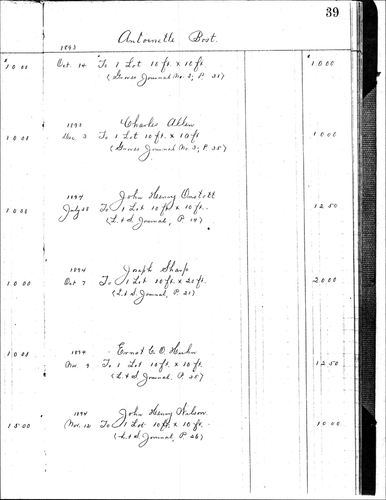 39
Antoinette Bost.
1893
10 00 Oct. 14 To 1 Lot 10 ft. x 10 ft. 10 00
(Graves Journal No. 3, P. 31)
Charles Allen
1893
10 00 Dec. 3 To 1 Lot 10 ft. x 10 ft 10 00
(Graves Journal No. 3, P. 35)
John Henry
1894
10 00 July To 1 Lot 10 ft x 10 ft. 12 50
(L. & S. Journal, P. 14)
Joseph Sharp
1894
10 00 Oct 7 To 1 Lot 10 ft. x 20 ft. 20 00
(L. & S. Journal, P. 21)
Ernest C. O.
1894
10 00 Nov. 9 To 1 Lot 10 ft. x 10 ft. 12 50
(L. & S. Journal, P. 25)
John Henry Wilson
1894
15 00 Nov. 12 To 1 Lot 10 ft. x 10 ft. 10 00
(L. & S. Journal, P. 26)